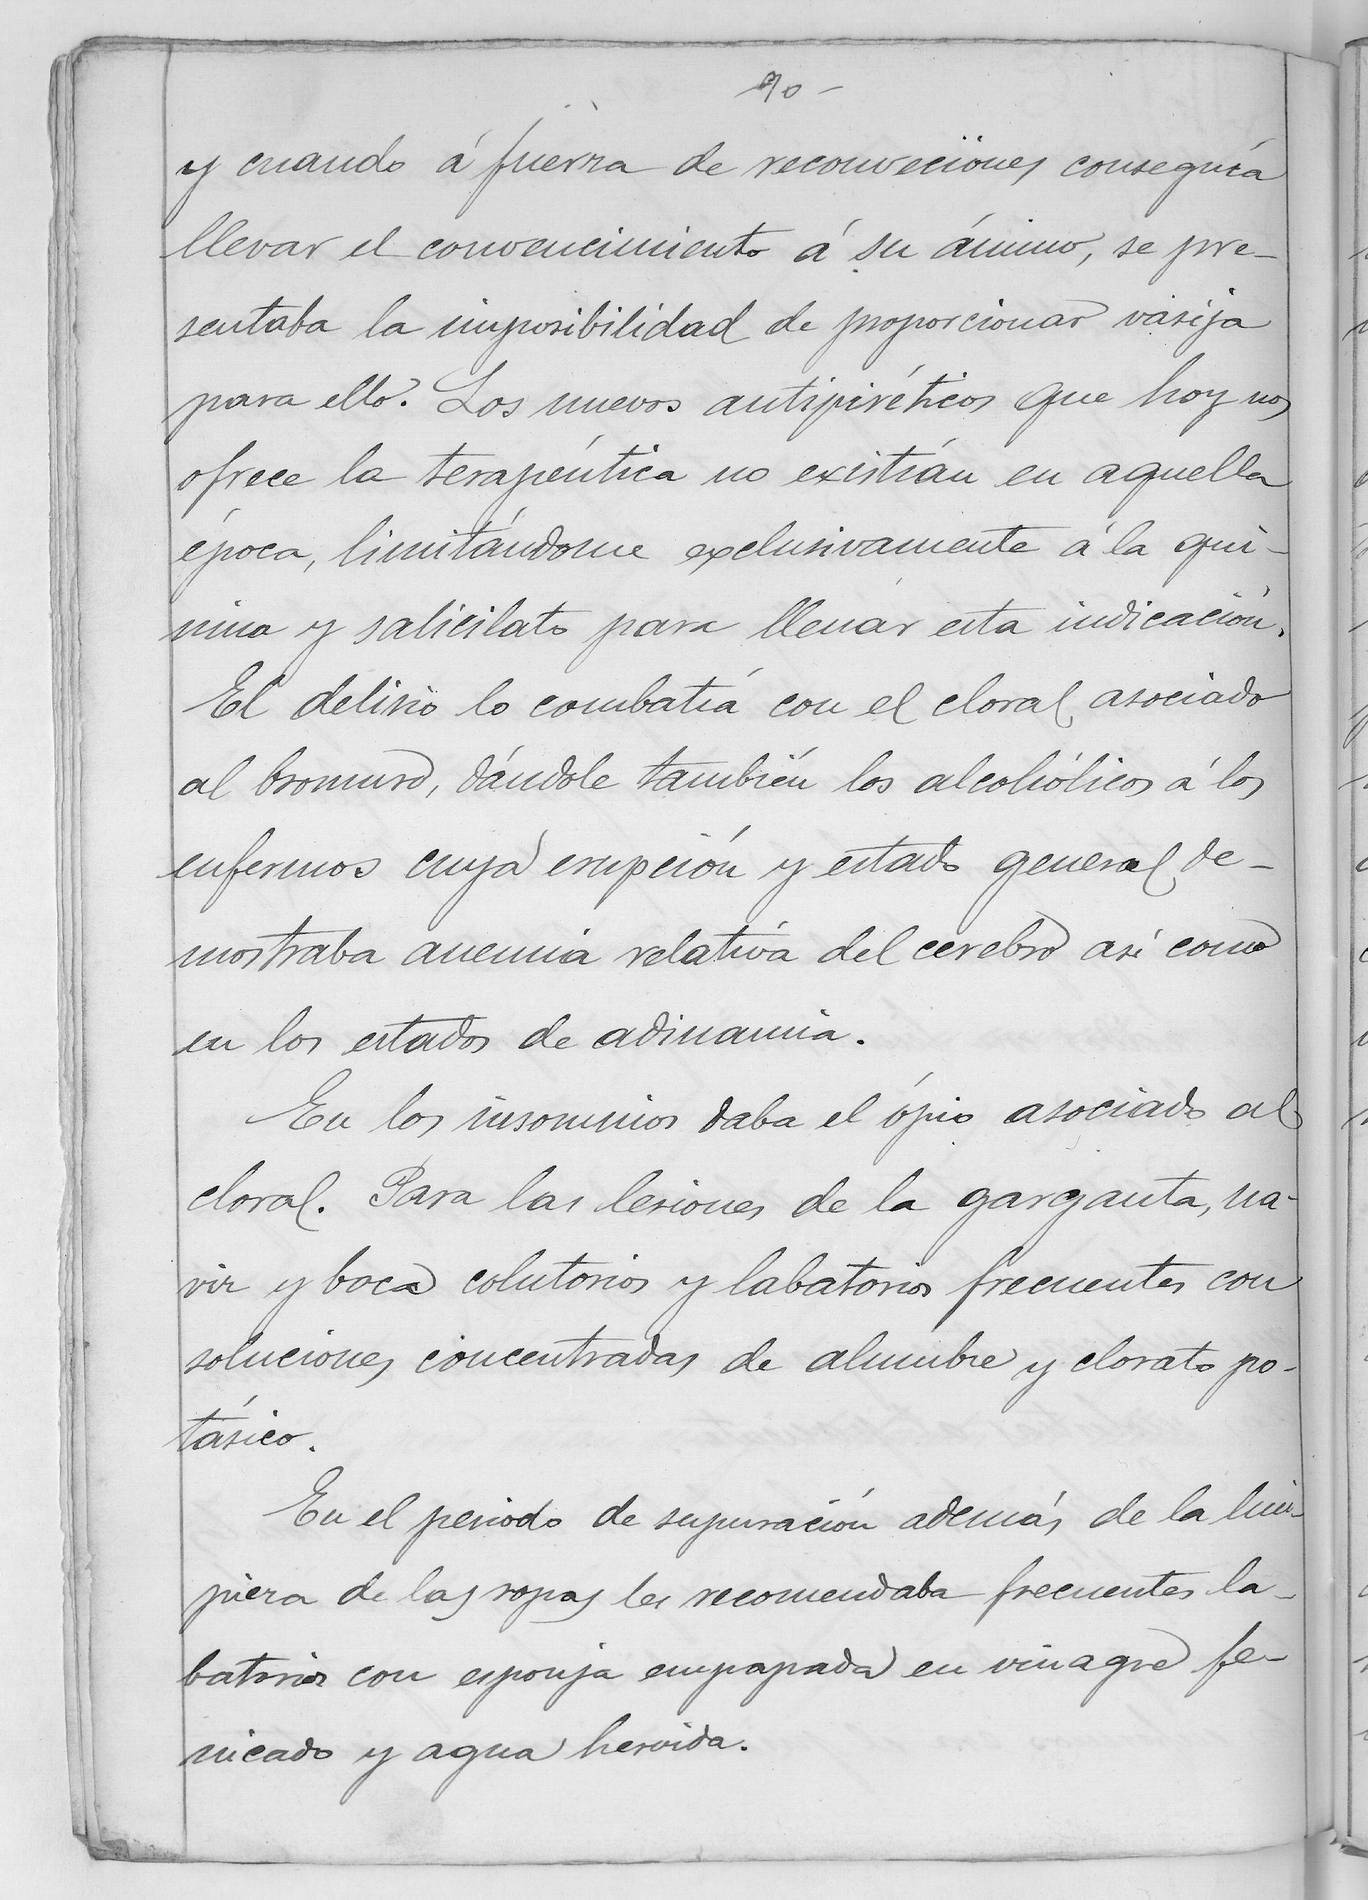 90 -
y cuando á fuerza de reconveciones conseguía
llevar el convencimiento á su ánimo, se pre-
sentaba la imposibilidad de proporcionar vasija
para ello. Los nuevos antipiréticos que hoy nos
ofrece la terapéutica no existían en aquella
época, limitándome exclusivamente á la qui-
nina y salicilato para llenar esta indicación.
El delirio lo combatía con el cloral asociado
al bromuro, dándole también los alcohólicos á los
enfermos cuya erupción y estado general de-
mostraba anemia relativa del cerebro así como
en los estados de adinamia.
En los insomnios daba el ópio asociado al
cloral. Para las lesiones de la garganta, na-
riz y boca colutorios y labatorios frecuentes con
soluciones concentradas de alumbre y clorato po-
tásico.
En el periodo de supuración además de la lim-
pieza de las ropas les recomendaba frecuentes la-
batorios con esponja empapada en vinagre fe-
nicado y agua hervida.